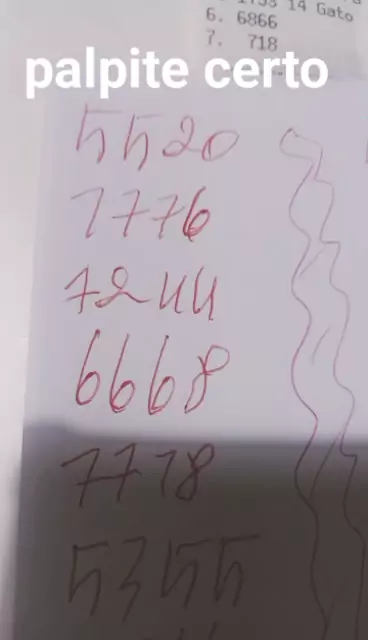 14 Gato
6. 6866
7. 718
palpite certo
5520
7776
7244
6668
7778
5355